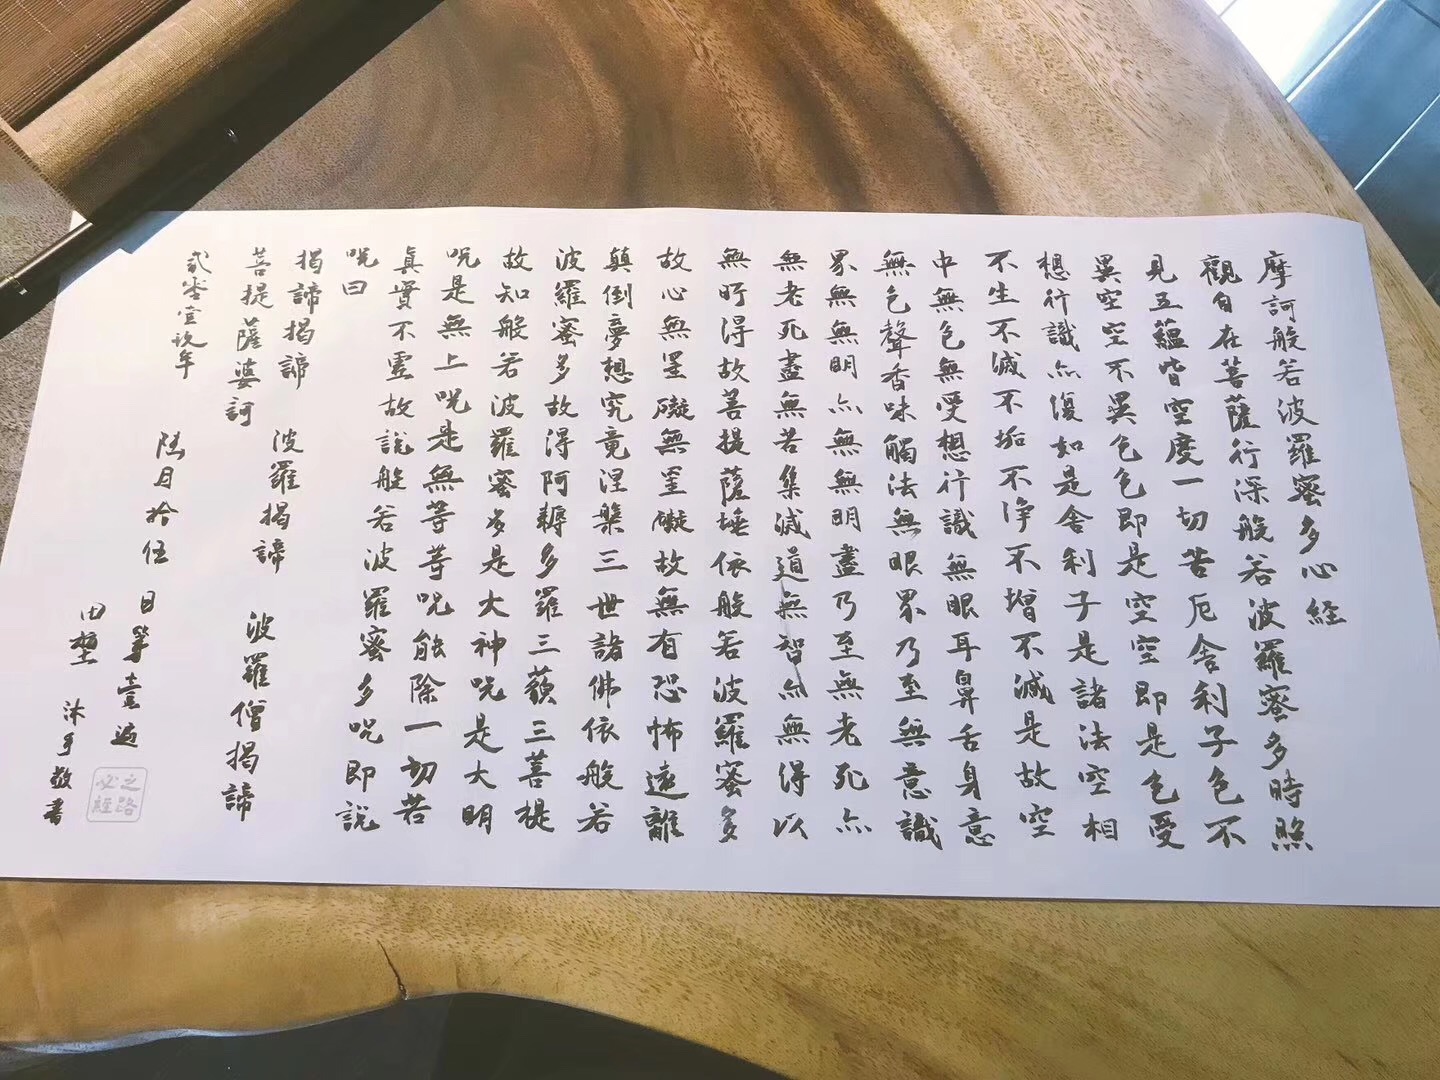 摩訶般若波羅蜜多心経
觀自在菩薩行深般若波羅蜜多時照
見五蘊皆空度一切苦厄舍利子色不
異空空不異色色即是空空即是色受
想行識亦復如是舍利子是諸法空相
不生不滅不垢不淨不增不減是故空
中無色無受想行識無眼耳鼻舌身意
無色聲香味觸法無眼界乃至無意識
界無無明亦無無明盡乃至無老死亦
無老死盡無苦集滅道無智亦無得以
無所得故菩提薩埵依般若波羅蜜多
故心無罣礙無罣礙故無有恐怖遠離
顛倒夢想究竟涅槃三世諸佛依般若
波羅蜜多故得阿耨多羅三藐三菩提
故知般若波羅蜜多是大神咒是大明
咒是無上咒是無等等咒能除一切苦
真實不虛故說般若波羅蜜多咒即說
咒曰
揭諦揭諦 波羅揭諦 波羅僧揭諦
菩提薩婆訶
貳零壹玖年 陸月拾伍日第壹遍
田 沐手敬書
之路